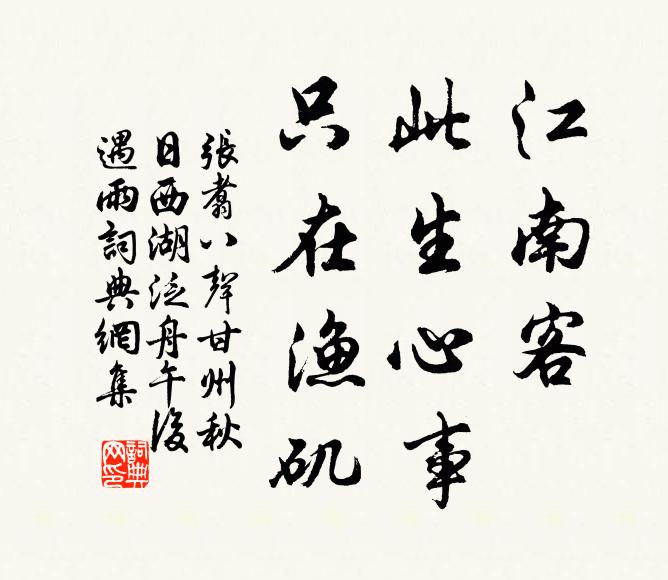 江南客
此生心事
只在漁矶
張翥八聲甘州秋
日西湖泛舟午後
遇雨詞典網集
詞典
网印